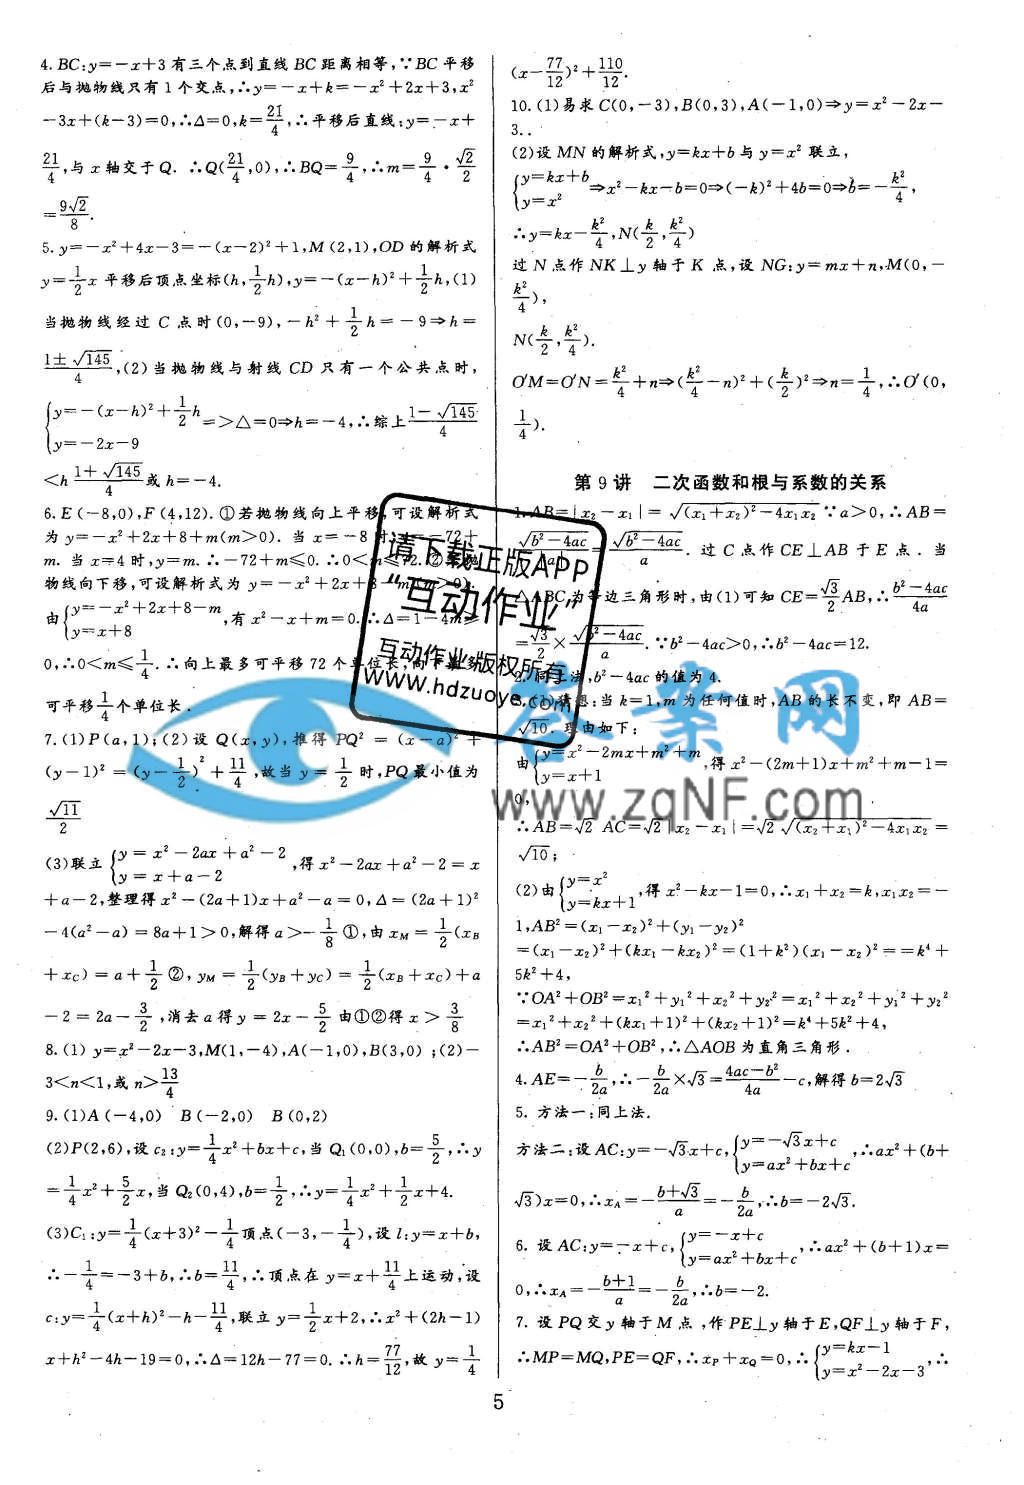 4. BC:y=-x+3有三个点到直线BC距离相等,∵BC平移
后与抛物线只有1个交点,∴y=-x+k=-x²+2x+3,x²
-3x+(k-3)=0,∴Δ=0,k=21/4,∴平移后直线:y=-x+
21/4,与x轴交于Q. ∴Q(21/4,0),∴BQ=9/4,∴m=9/4·√2/2
=9√2/8.
5. y=-x²+4x-3=-(x-2)²+1,M(2,1),OD的解析式
y=1/2x平移后顶点坐标(h,1/2h),y=-(x-h)²+1/2h,(1)
当抛物线经过C点时(0,-9),-h²+1/2h=-9⇒h=
1±√145/4,(2)当抛物线与射线CD只有一个公共点时,
{y=-(x-h)²+1/2h
y=-2x-9 =>△=0⇒h=-4,∴综上1-√145/4
<h 1+√145/4或h=-4.
6. E(-8,0),F(4,12). ①若抛物线向上平移,可设解析式
为y=-x²+2x+8+m(m>0). 当x=-8时,y=-72+
m. 当x=4时,y=m. ∴-72+m≤0. ∴0<m≤72. ②若抛
物线向下移,可设解析式为y=-x²+2x+8-m(m>0).
由{y=-x²+2x+8-m
y=x+8 ,有x²-x+m=0. ∴Δ=1-4m≥
0,∴0<m≤1/4. ∴向上最多可平移72个单位长,向下最多
可平移1/4个单位长.
7. (1)P(a,1);(2)设Q(x,y),推得PQ²=(x-a)²+
(y-1)²=(y-1/2)²+11/4,故当y=1/2时,PQ最小值为
√11/2
(3)联立{y=x²-2ax+a²-2
y=x+a-2 ,得x²-2ax+a²-2=x
+a-2,整理得x²-(2a+1)x+a²-a=0,Δ=(2a+1)²
-4(a²-a)=8a+1>0,解得a>-1/8①,由xM=1/2(xB
+xC)=a+1/2②,yM=1/2(yB+yC)=1/2(xB+xC)+a
-2=2a-3/2,消去a得y=2x-5/2由①②得x>3/8
8. (1) y=x²-2x-3,M(1,-4),A(-1,0),B(3,0);(2)-
3<n<1,或n>13/4
9. (1)A(-4,0) B(-2,0) B(0,2)
(2)P(2,6),设c₂:y=1/4x²+bx+c,当Q₁(0,0),b=5/2,∴y
=1/4x²+5/2x,当Q₂(0,4),b=1/2,∴y=1/4x²+1/2x+4.
(3)C₁:y=1/4(x+3)²-1/4顶点(-3,-1/4),设l:y=x+b,
∴-1/4=-3+b,∴b=11/4,∴顶点在y=x+11/4上运动,设
c:y=1/4(x+h)²-h-11/4,联立y=1/2x+2,∴x²+(2h-1)
x+h²-4h-19=0,∴Δ=12h-77=0. ∴h=77/12,故y=1/4
(x-77/12)²+110/12.
10. (1)易求C(0,-3),B(0,3),A(-1,0)⇒y=x²-2x-
3..
(2)设MN的解析式,y=kx+b与y=x²联立,
{y=kx+b
y=x² ⇒x²-kx-b=0⇒(-k)²+4b=0⇒b=-k²/4,
∴y=kx-k²/4,N(k/2,k²/4)
过N点作NK⊥y轴于K点,设NG:y=mx+n,M(0,-
k²/4),
N(k/2,k²/4).
O′M=O′N=k²/4+n⇒(k²/4-n)²+(k/2)²⇒n=1/4,∴O′(0,
1/4).
第9讲 二次函数和根与系数的关系
1. AB=|x₂-x₁|=√(x₁+x₂)²-4x₁x₂ ∵a>0,∴AB=
√b²-4ac/|a|=√b²-4ac/a. 过C点作CE⊥AB于E点. 当
△ABC为等边三角形时,由(1)可知CE=√3/2AB,∴b²-4ac/4a
=√3/2×√b²-4ac/a. ∵b²-4ac>0,∴b²-4ac=12.
2. 同上法,b²-4ac的值为4.
3. (1)猜想:当k=1,m为任何值时,AB的长不变,即AB=
√10. 理由如下:
由{y=x²-2mx+m²+m
y=x+1 ,得x²-(2m+1)x+m²+m-1=
0,
∴AB=√2 AC=√2|x₂-x₁|=√2 √(x₂+x₁)²-4x₁x₂=
√10;
(2)由{y=x²
y=kx+1 ,得x²-kx-1=0,∴x₁+x₂=k,x₁x₂=-
1,AB²=(x₁-x₂)²+(y₁-y₂)²
=(x₁-x₂)²+(kx₁-kx₂)²=(1+k²)(x₁-x₂)²==k⁴+
5k²+4,
∵OA²+OB²=x₁²+y₁²+x₂²+y₂²=x₁²+x₂²+y₁²+y₂²
=x₁²+x₂²+(kx₁+1)²+(kx₂+1)²=k⁴+5k²+4,
∴AB²=OA²+OB²,∴△AOB为直角三角形.
4. AE=-b/2a,∴-b/2a×√3=4ac-b²/4a-c,解得b=2√3
5. 方法一:同上法.
方法二:设AC:y=-√3x+c,{y=-√3x+c
y=ax²+bx+c ,∴ax²+(b+
√3)x=0,∴xA=-b+√3/a=-b/2a,∴b=-2√3.
6. 设AC:y=-x+c,{y=-x+c
y=ax²+bx+c ,∴ax²+(b+1)x=
0,∴xA=-b+1/a=-b/2a,∴b=-2.
7. 设PQ交y轴于M点,作PE⊥y轴于E,QF⊥y轴于F,
∴MP=MQ,PE=QF,∴xP+xQ=0,∴{y=kx-1
y=x²-2x-3 ,∴
5
请下载正版APP
“互动作业”
互动作业版权所有
www.hdzuoye.com
答案网
www.zqNF.com